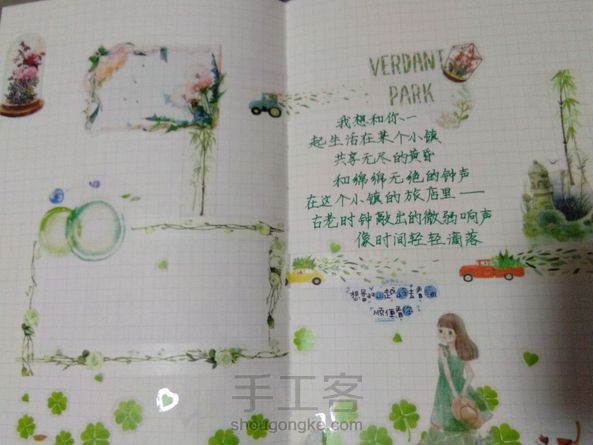 VERDANT
PARK
我想和你一
起生活在某个小镇
共享无尽的黄昏
和绵绵无绝的钟声
在这个小镇的旅店里——
古老时钟敲出的微弱响声
像时间轻轻滴落
顺便看你
手工客
shougongke.com